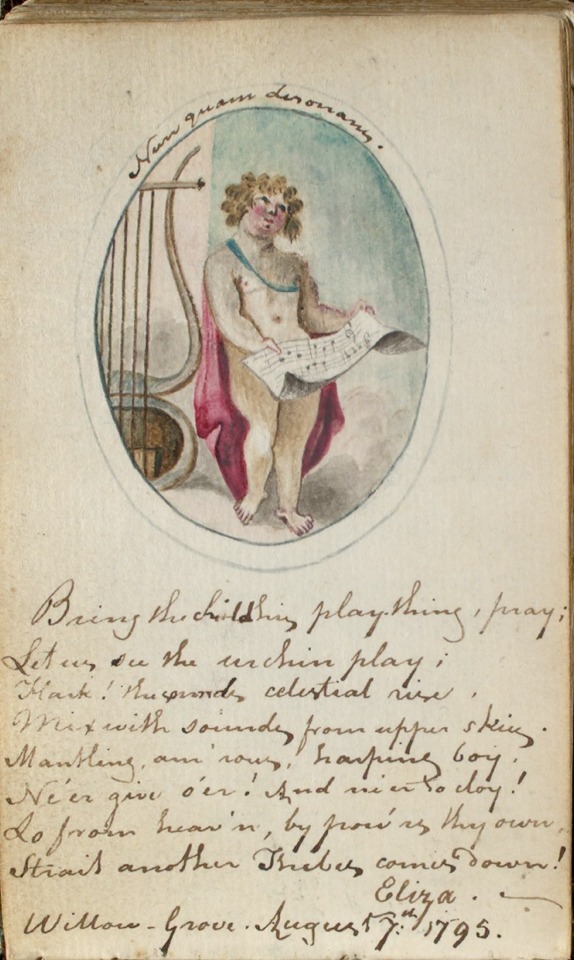 Nun quam desonans.
Bring the child his play-thing, pray;
Let us see the urchin play;
Hark! the sounds celestial rise,
Mix with sounds from upper skies.
Mantling, am'rous, harping boy,
Ne'er give o'er! And ne'er so cloy!
Lo from heav'n, by pow'rs thy own,
Strait another Thebes comes down!
Eliza.
Willow-Grove. August 7th 1795.